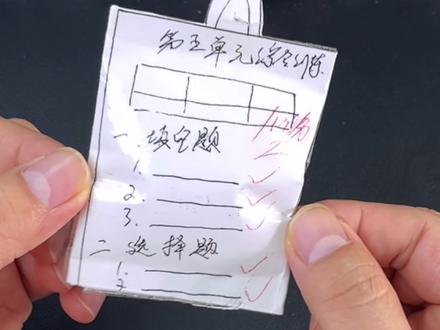 第五单元综合训练
一、填空题
1.
2.
3.
二选择题
1.
2